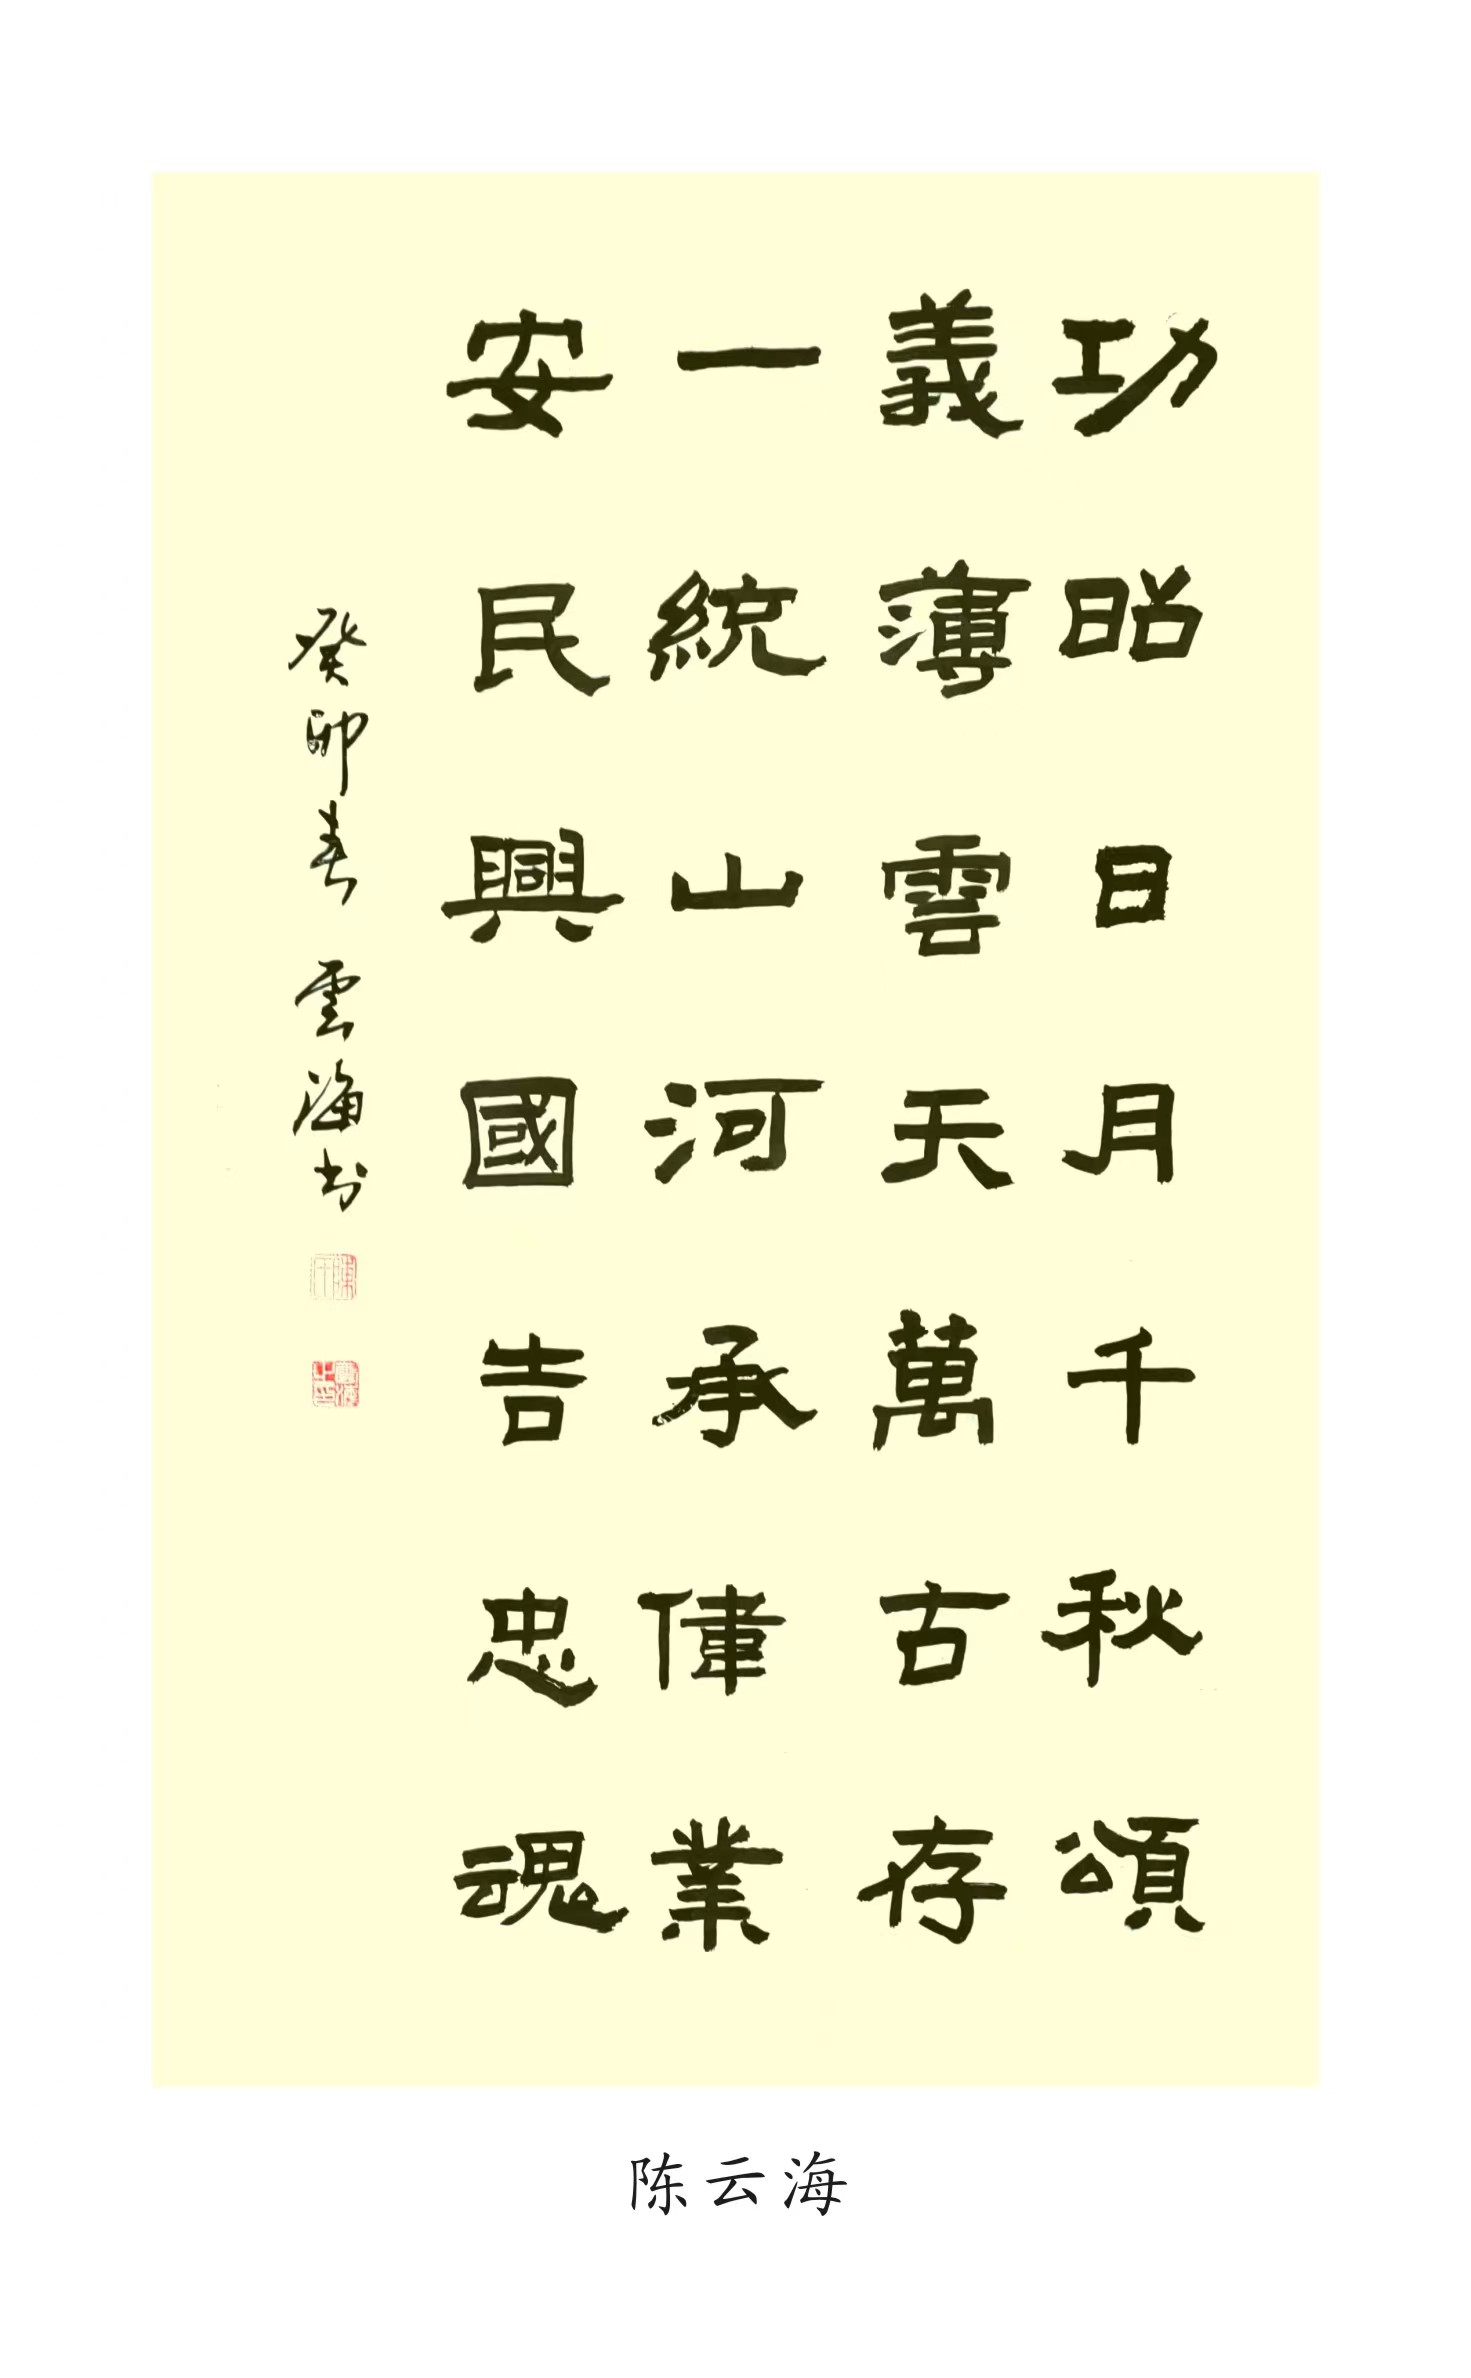 功昭日月千秋頌
義薄雲天萬古存
一統山河承偉業
安民興國告忠魂
癸卯春 雲海書
陈云海